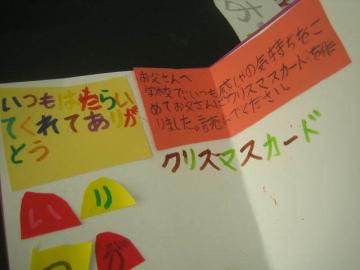 いつもはたらい
てくれてありが
とう
お父さんへ
学校で、いつも感謝の気持ちをこ
めてお父さんにクリスマスカードを作
りました。読んでください。
クリスマスカード
い
り
が